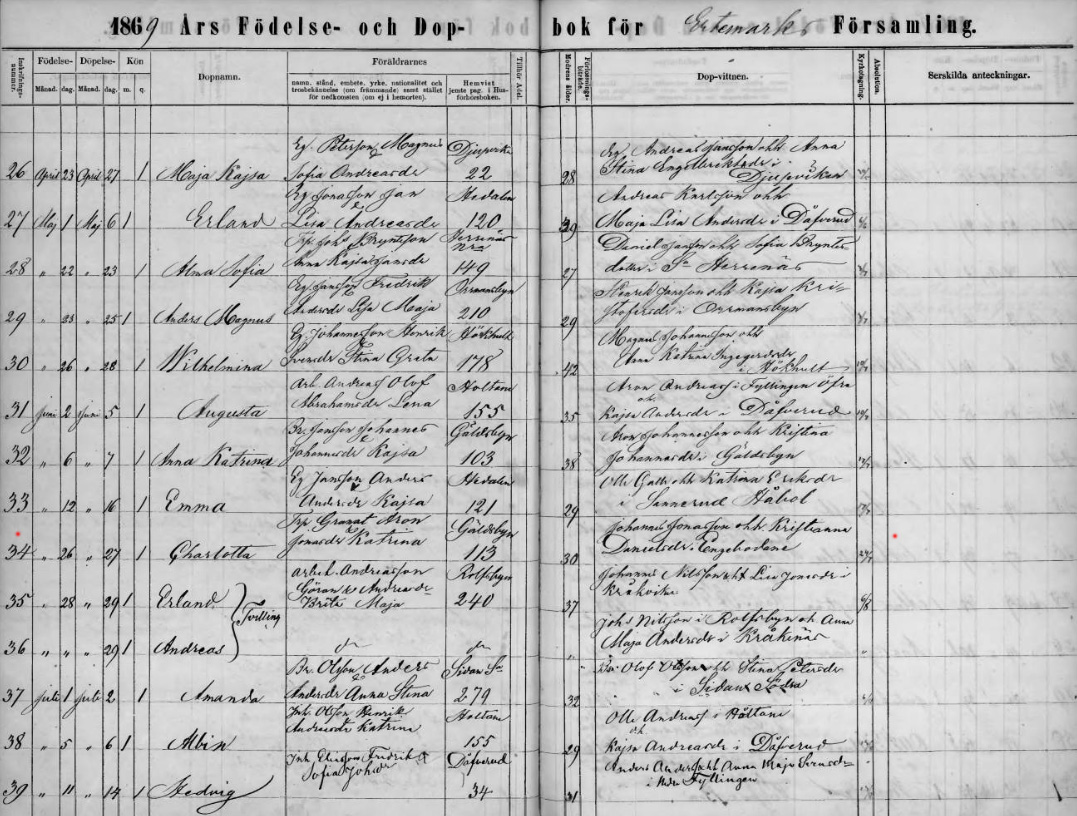 1869 Års Födelse- och Dop-bok för Ertemarks Församling.
Inskrifnings-nummer. Födelse- Månad. dag. Döpelse- Månad. dag. Kön m. q. Dopnamn. Föräldrarnes
namn, stånd, embete, yrke, nationalitet och
trosbekännelse (om främmande) samt stället
för nedkomsten (om ej i hemorten).
Hemvist
jemte pag. i Hus-
förhörsboken.
Tillhör Adel. Modrens ålder. Dop-vittnen. Kyrkotagning. Absolution. Serskilda anteckningar.
Eg. Peterson Magnus Eg. Andreas Jansson och Anna
26 April 23 April 27 1 Maja Kajsa Sofia Andreasdr 22 28 Stina i Djupviken
Eg Jonasson Jan Hedalen Andreas Karlsson och
27 Maj 1 Maj 6 1 Erland Lisa Andreasdr 120 39 Maja Lisa Andersdr i Däfverud
Johs Bryntsson Daniel Jansson och Sofia Brynts
28 " 22 " 23 1 Alma Sofia Anna Kajsa Jansdr 149 27 dotter i Sn Herrenäs
Eg. Jansson Fredrik Ormansbyn Henrik Jansson och Kajsa Kri-
29 " 23 " 25 1 Anders Magnus Andersdr Lisa Maja 210 29 stofersdr i Ormansbyn
Eg Johannesson Henrik Hökhult Magnus Johansson och
30 " 26 " 28 1 Wilhelmina Svensdr Stina Greta 178 42 i Hökhult
Arb. Andreas Olof Holtane Aron Andreass i Fyllingen Öfra
31 Juni 2 Juni 5 1 Augusta Abrahamsdr Lena 155 35 och Kajsa Andersdr i Däfverud
Br. Jonsson Johannes Gäldsbyn Aron Johannesson och Kristina
32 " 6 " 7 1 Anna Katrina Johannesdr Kajsa 103 38 Johannesdr i Gäldsbyn
Eg Jansson Anders Hedalen Olle och Katrina Eriksdr
33 " 12 " 16 1 Emma Andersdr Kajsa 121 29 i Sannerud Håbol
Granat Aron Gäldsbyn Johannes Jonasson och Kristianna
34 " 26 " 27 1 Charlotta Jonasdr Katrina 113 30 Danielsdr. Engebodane
Arbet. Andreasson Rolfsbyn Johannes Nilsson och Lisa Jonasdr i
35 " 28 " 29 1 Erland Tvilling Göran & Andreasdr
Brita Maja 240 37
Johs Nilsson i Rolfsbyn och Anna
36 " " " 29 1 Andreas do do " Maja Andersdr i Kråkenäs
Br. Olsson Anders Sidan Sn Br. Olof Olsson och Stina Petersdr
37 Juli 1 Juli 2 1 Amanda Andersdr Anna Stina 279 32 i Sidan Södra
Inh. Olsson Henrik Holtane Olle Andreass i Håltane
38 " 5 " 6 1 Albin Andreasdr Katrina 155 29 och Kajsa Andreasdr i Däfverud
Inh. Eliasson Fredrik & Däfverud Anders Anderss och Anna Maja Svensdr
39 " 11 " 14 1 Hedvig Sofia Johsdr 34 31 i Nedre Fyllingen